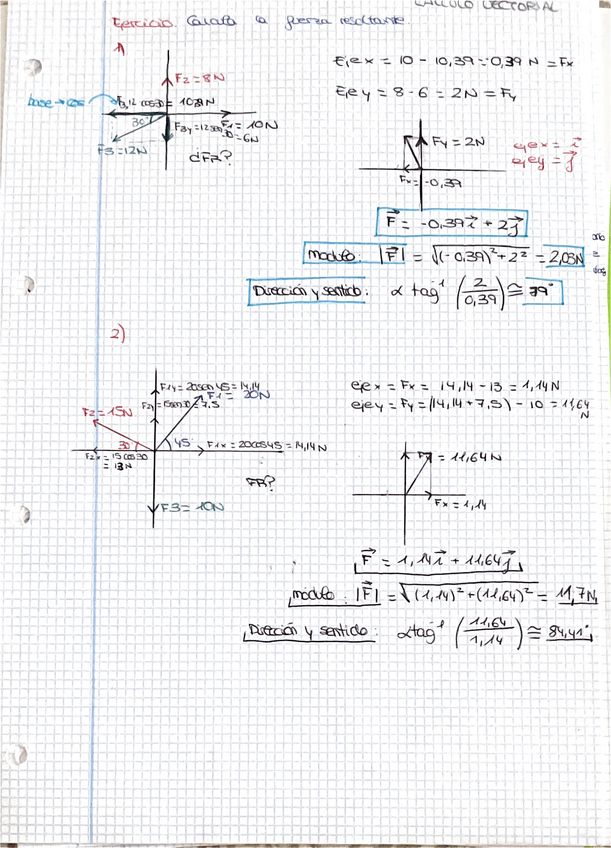 CALCULO VECTORIAL
Ejercicio. Calcula la fuerza resultante.
1)
F2 = 8N
base → cos
F3x 12 cos30 =
30°
F1 = 10N
F3y = 12 sen 30 = 6N
F3 = 12N
d FR?
Eje x = 10 - 10,39 = -0,39 N = Fx
Eje y = 8 - 6 = 2N = Fy
Fy = 2N
Fx = -0,39
eje x = i
eje y = j
F = -0,39 i + 2 j
modulo: |F| = √(-0,39)² + 2² = 2,03N
Dirección y sentido: α tag⁻¹ (2/0,39) ≅ 79°
2)
F1y = 20sen45 = 14,14
F2y = 15sen30 = 7,5
F1 = 20N
F2 = 15N
30°
45°
F1x = 20cos45 = 14,14N
F2x = 15 cos30
= 13N
F3 = 10N
FR?
eje x = Fx = 14,14 - 13 = 1,14N
eje y = Fy = (14,14 + 7,5) - 10 = 11,64
N
Fy = 11,64 N
Fx = 1,14
F = 1,14 i + 11,64 j
modulo: |F| = √(1,14)² + (11,64)² = 11,7N
Dirección y sentido: α tag⁻¹ (11,64/1,14) ≅ 84,41°